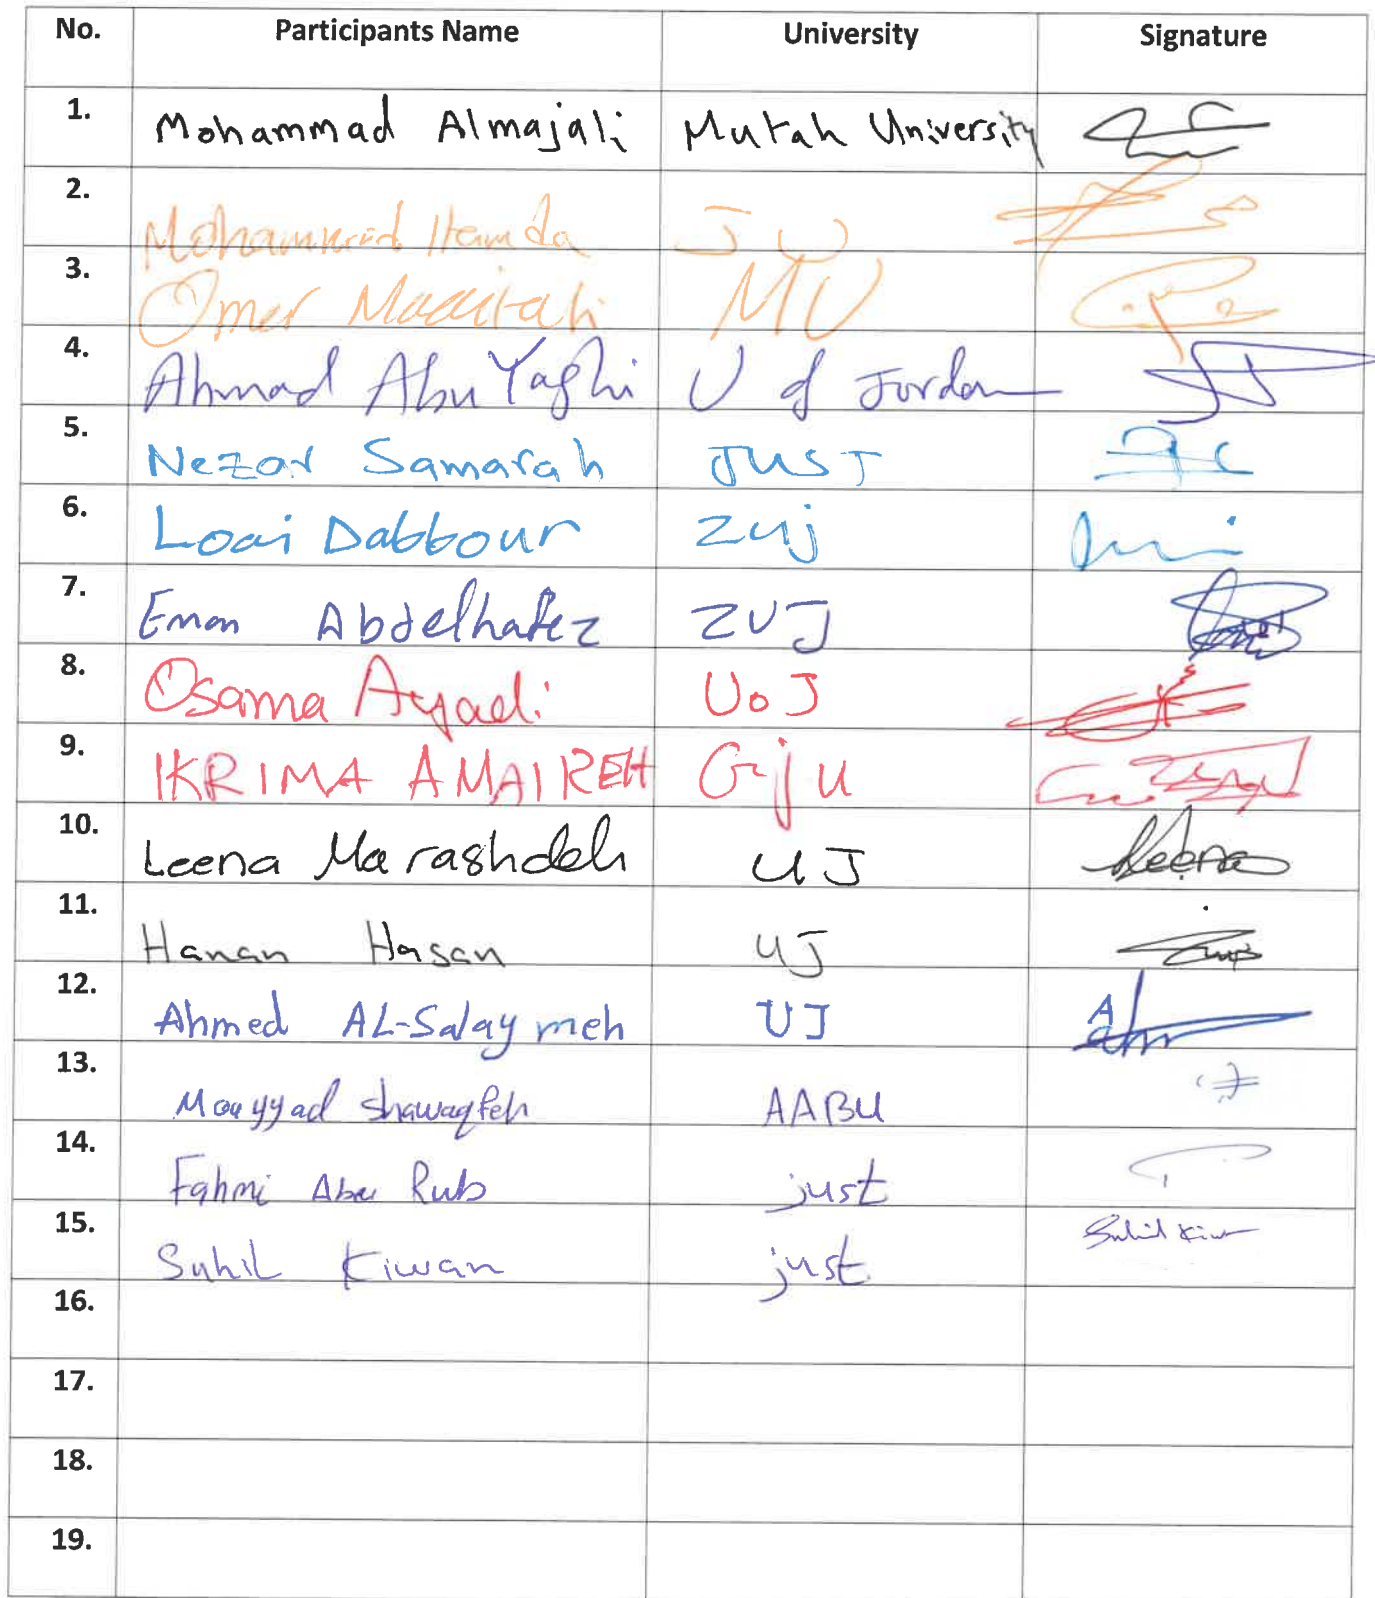 No. Participants Name University Signature
1. Mohammad Almajali Mutah University
2. Mohammad Hamda JU
3. Omer Maaitah MU
4. Ahmad Abu Yaghi U of Jordan
5. Nezar Samarah JUST
6. Loai Dabbour zuj
7. Eman Abdelhafez ZUJ
8. Osama Ayadi UoJ
9. IKRIMA AMAIREH GjU
10. Leena Marashdeh UJ Leena
11. Hanan Hasan UJ
12. Ahmed AL-Salaymeh UJ
13. Moayyad Shawaqfeh AABU
14. Fahmi Abu Rub just
15. Suhil Kiwan just Suhil Kiwan
16.
17.
18.
19.